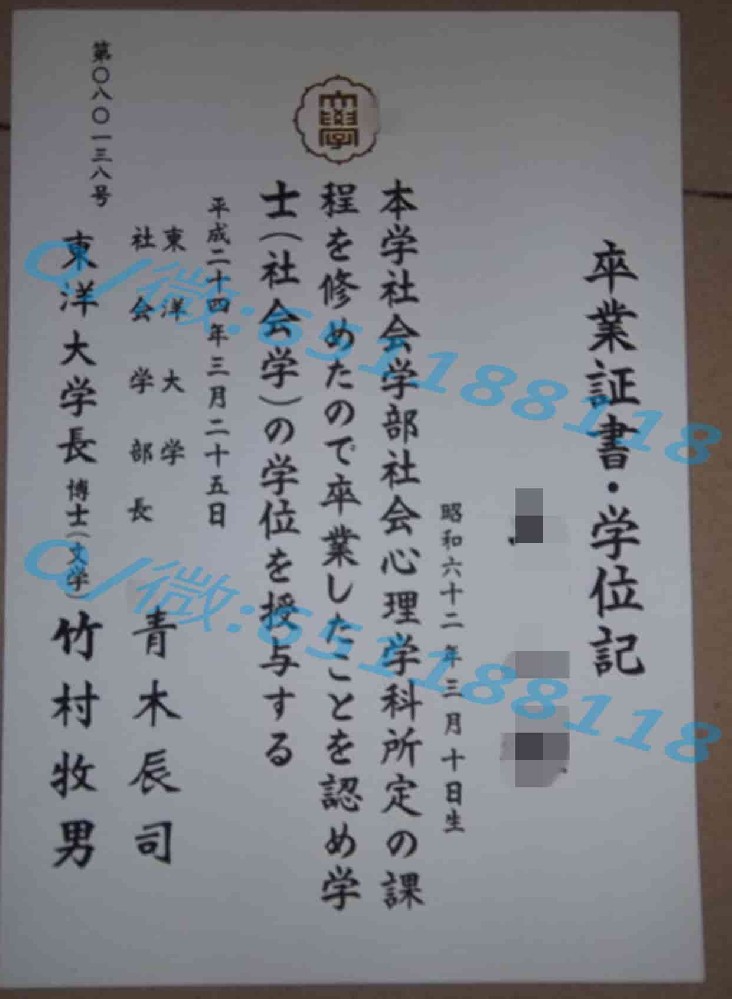 卒業証書・学位記
昭和六十二年三月十日生
本学社会学部社会心理学科所定の課
程を修めたので卒業したことを認め学
士(社会学)の学位を授与する
平成二十四年三月二十五日
東洋大学
社会学部長 青木辰司
東洋大学長 博士(文学) 竹村牧男
第〇八〇一三八号
大學
Q/微:651188118
Q/微:651188118